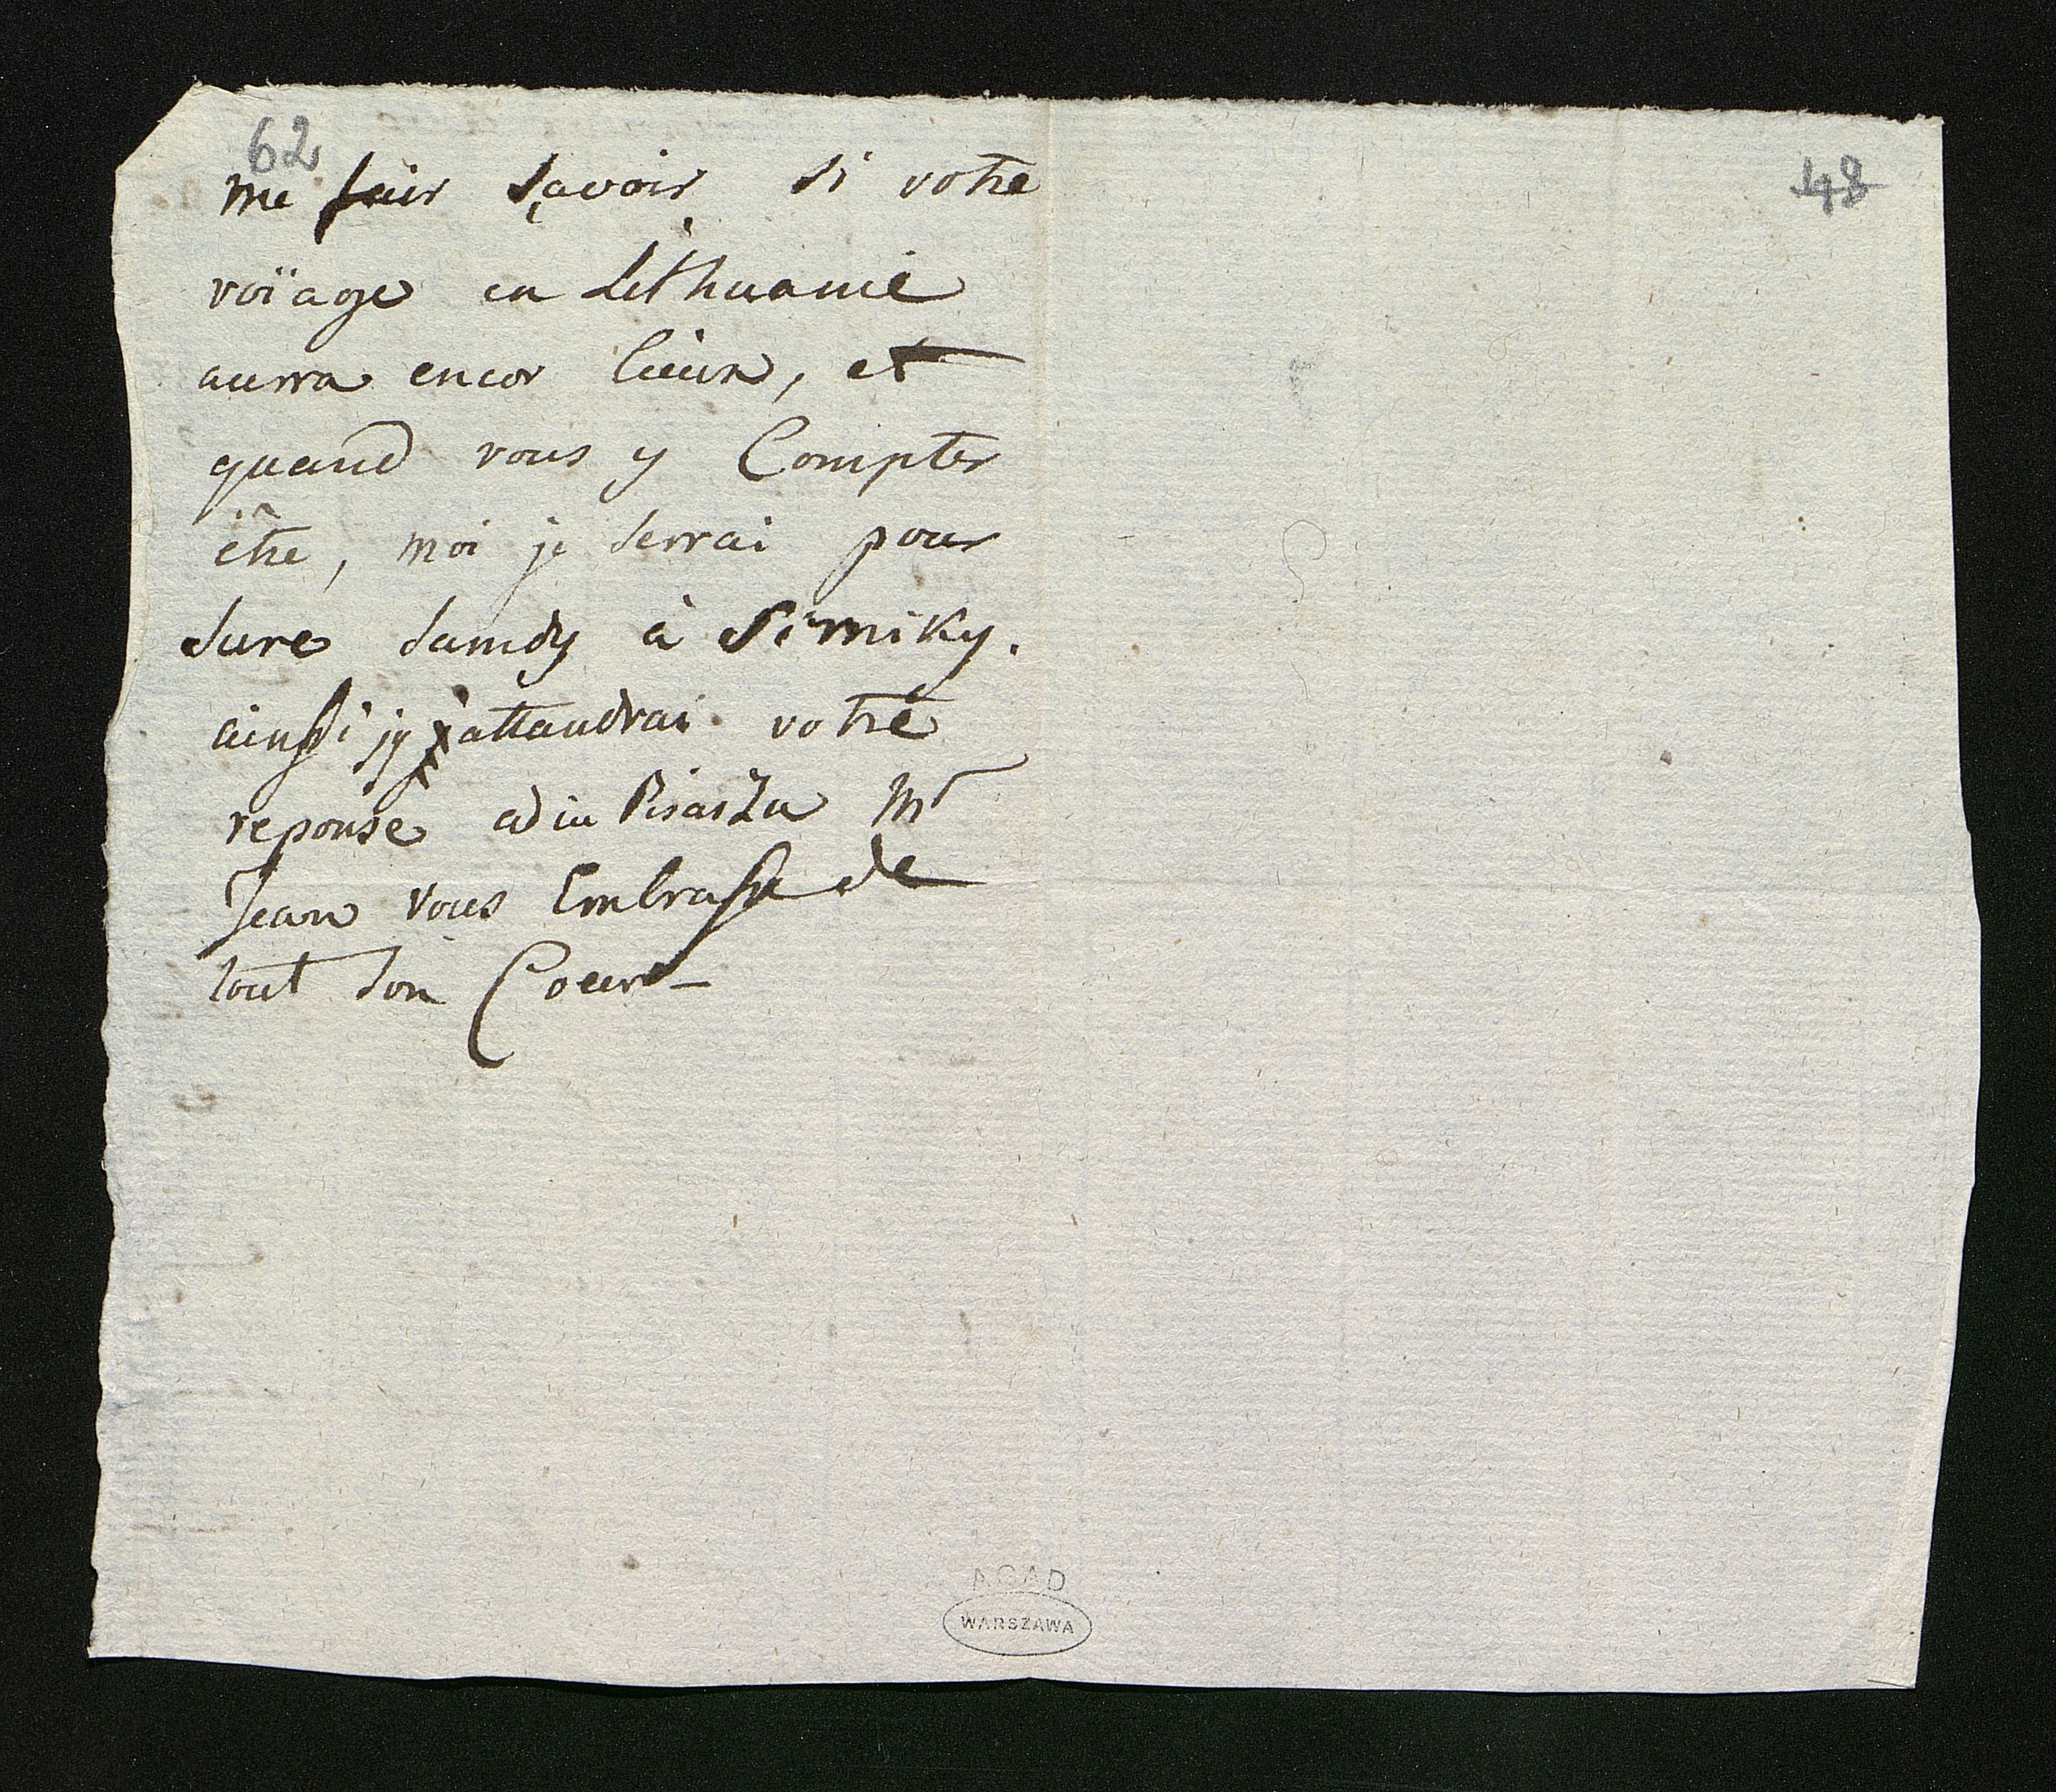 62
48
me fair sçavoir si votre
voïage en Lithuanie
aurra encor lieux, et
quand vous y Compter
être, moi je serrai pour
sure samdy à Sirniky.
ainsi jy attandrai votre
reponse adiu Pisaszu Mr
Jean vous Embrasse de
tout son Coeur -
AGAD
WARSZAWA